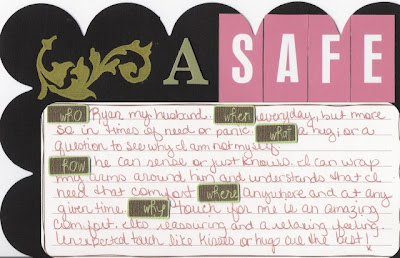 A SAFE
who Ryan my husband. when everyday, but more
so in times of need or panic. what a hug, or a
question to see why I am not myself.
how he can sense or just knows. I can wrap
my arms around him and understands that I
need that comfort where anywhere and at any
given time. why touch for me is an amazing
comfort. Its reassuring and a relaxing feeling.
Unexpected touch like kisses or hugs are the best!
x